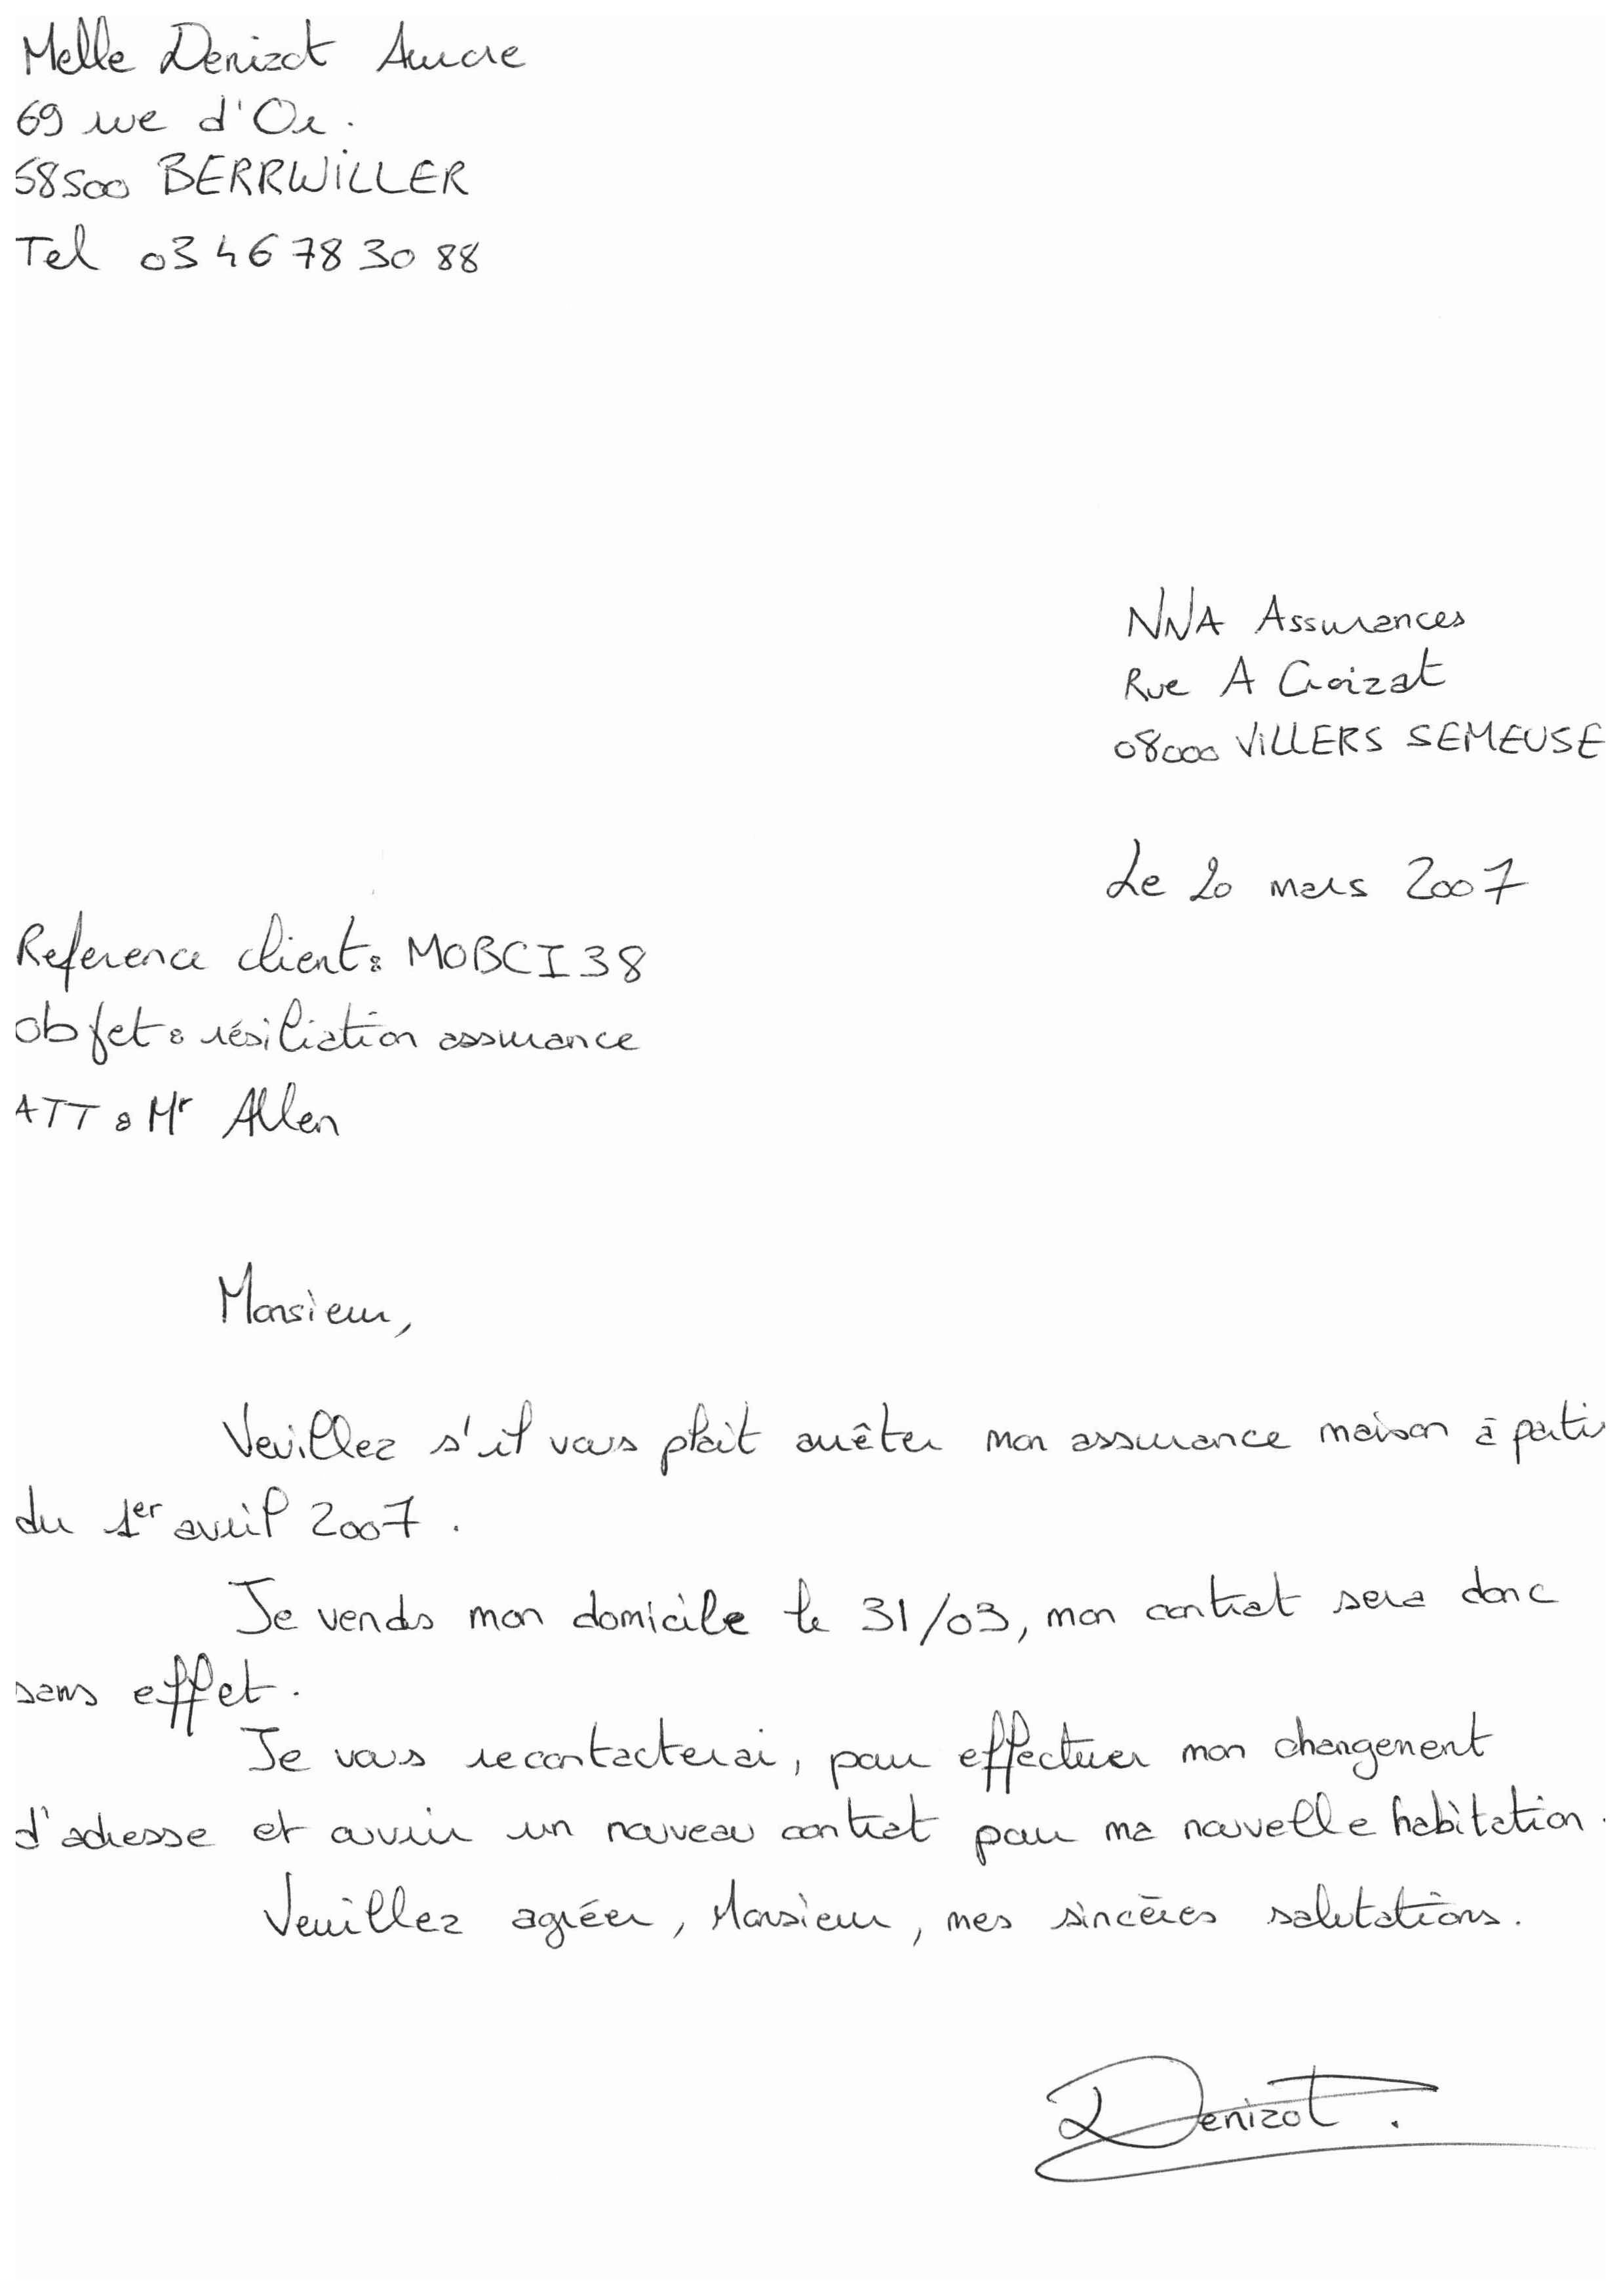 Melle Denizot Aurore
69 rue d'Or.
68500 BERRWILLER
Tel 03 46 78 30 88
NNA Assurances
Rue A Croizat
08000 VILLERS SEMEUSE
Le 20 mars 2007
Reference client : MOBCI38
Objet : résiliation assurance
ATT : Mr Allen
Monsieur,
Veuillez s'il vous plait arrêter mon assurance maison à partir
du 1er avril 2007.
Je vends mon domicile le 31/03, mon contrat sera donc
sans effet.
Je vous recontacterai, pour effectuer mon changement
d'adresse et ouvrir un nouveau contrat pour ma nouvelle habitation.
Veuillez agréer, Monsieur, mes sincères salutations.
Denizot.